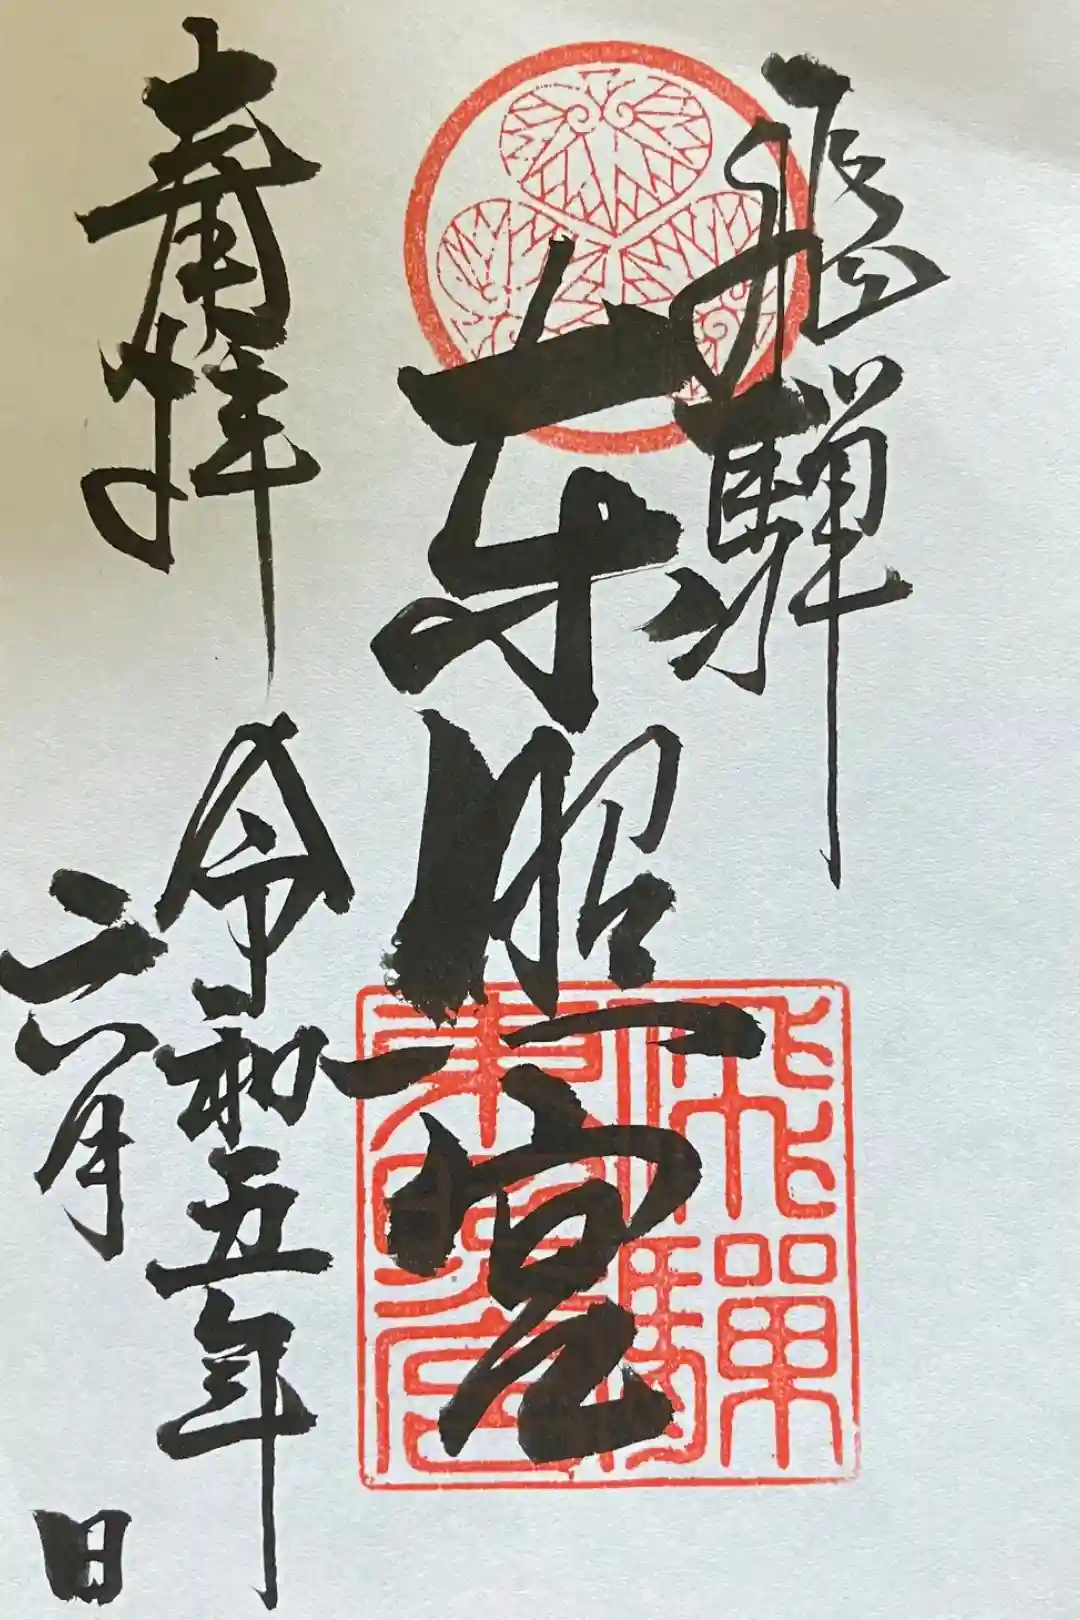 飛騨
東照宮
奉拝
令和五年
六月　日
飛驒
東照宮